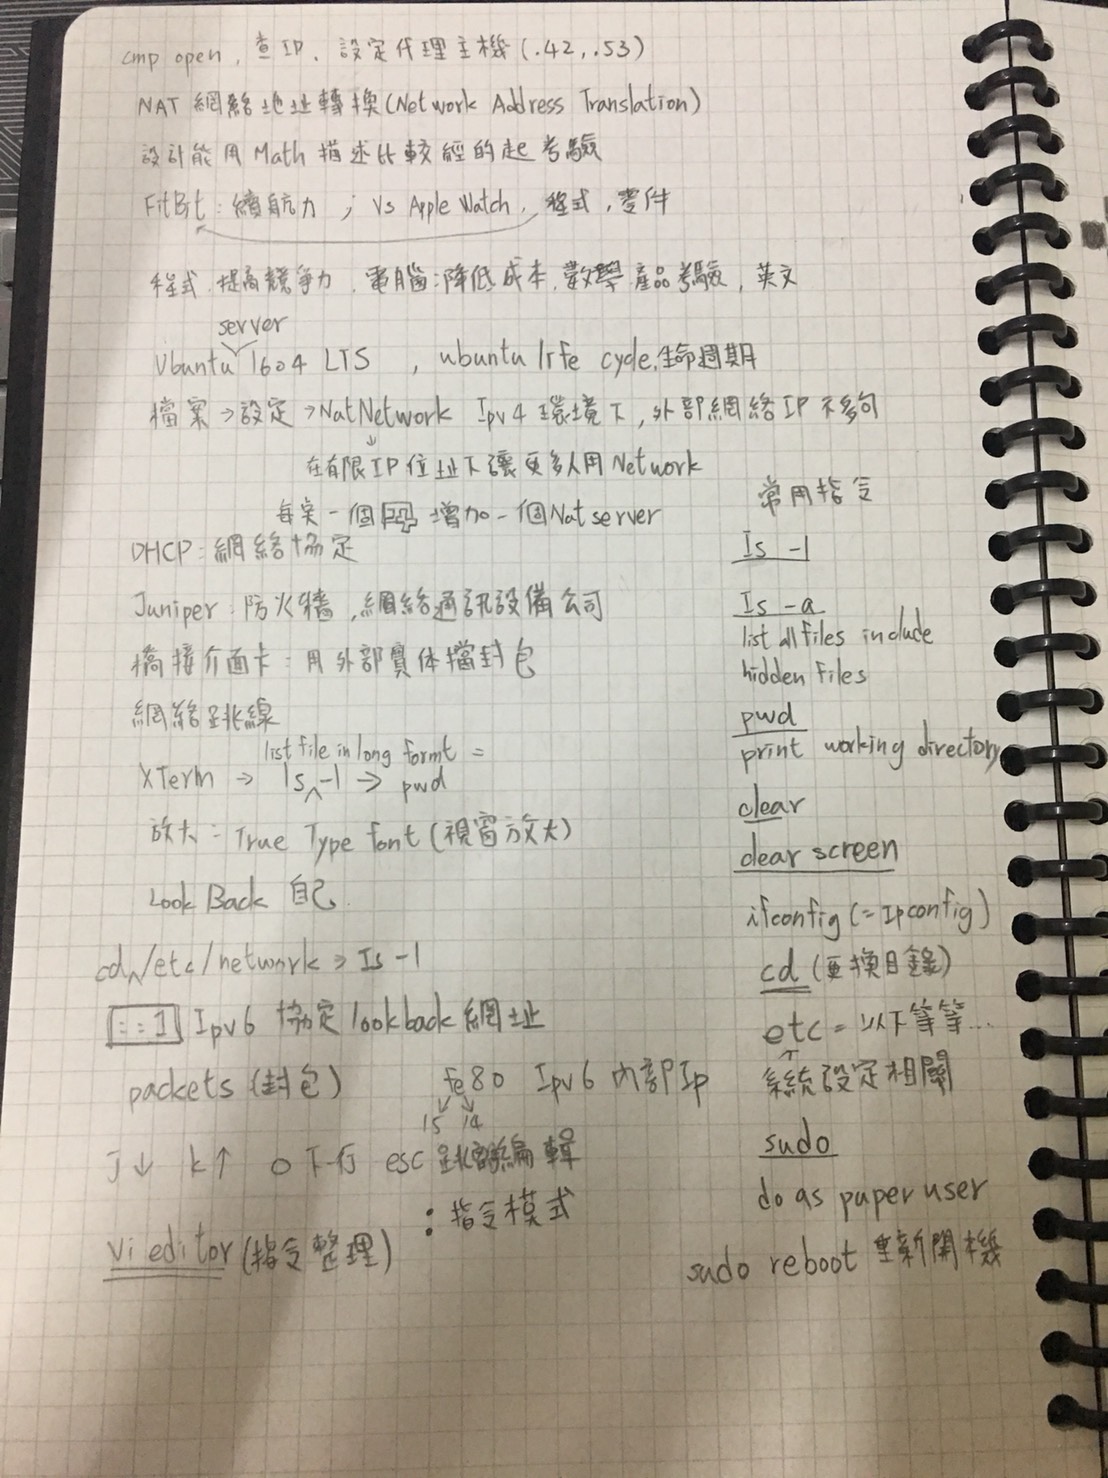 cmp open, 查IP, 設定代理主機(.42,.53)
NAT 網絡地址轉換(Network Address Translation)
設計能用Math描述比較經的起考驗
FitBit:續航力 ; Vs Apple Watch, 程式,零件
程式,提高競爭力,電腦:降低成本,數學 產品考驗,英文
server
Ubuntu 1604 LTS , ubuntu life cycle,生命週期
檔案→設定→NatNetwork Ipv4環境下,外部網絡IP不夠
↓
在有限IP位址下讓更多人用Network
每突一個 增加一個Nat server
DHCP:網絡協定
Juniper:防火牆,網絡通訊設備公司
橋接介面卡:用外部實体擋封包
網絡跳線
list file in long formt =
XTerm → ls -l → pwd
放大= True Type font(視窗放大)
LookBack 自己
cd /etc/network → ls -l
::1 Ipv6 協定 lookback網址
packets(封包) fe80 Ipv6 內部Ip
15 14
J↓ k↑ o下一行 esc 編輯
:指令模式
vi editor(指令整理)
常用指令
ls -l
ls -a
list all files include
hidden files
pwd
print working directory
clear
clear screen
ifconfig(=Ipconfig)
cd(更換目錄)
etc=以下等等...
系統設定相關
sudo
do as paper user
sudo reboot 重新開機